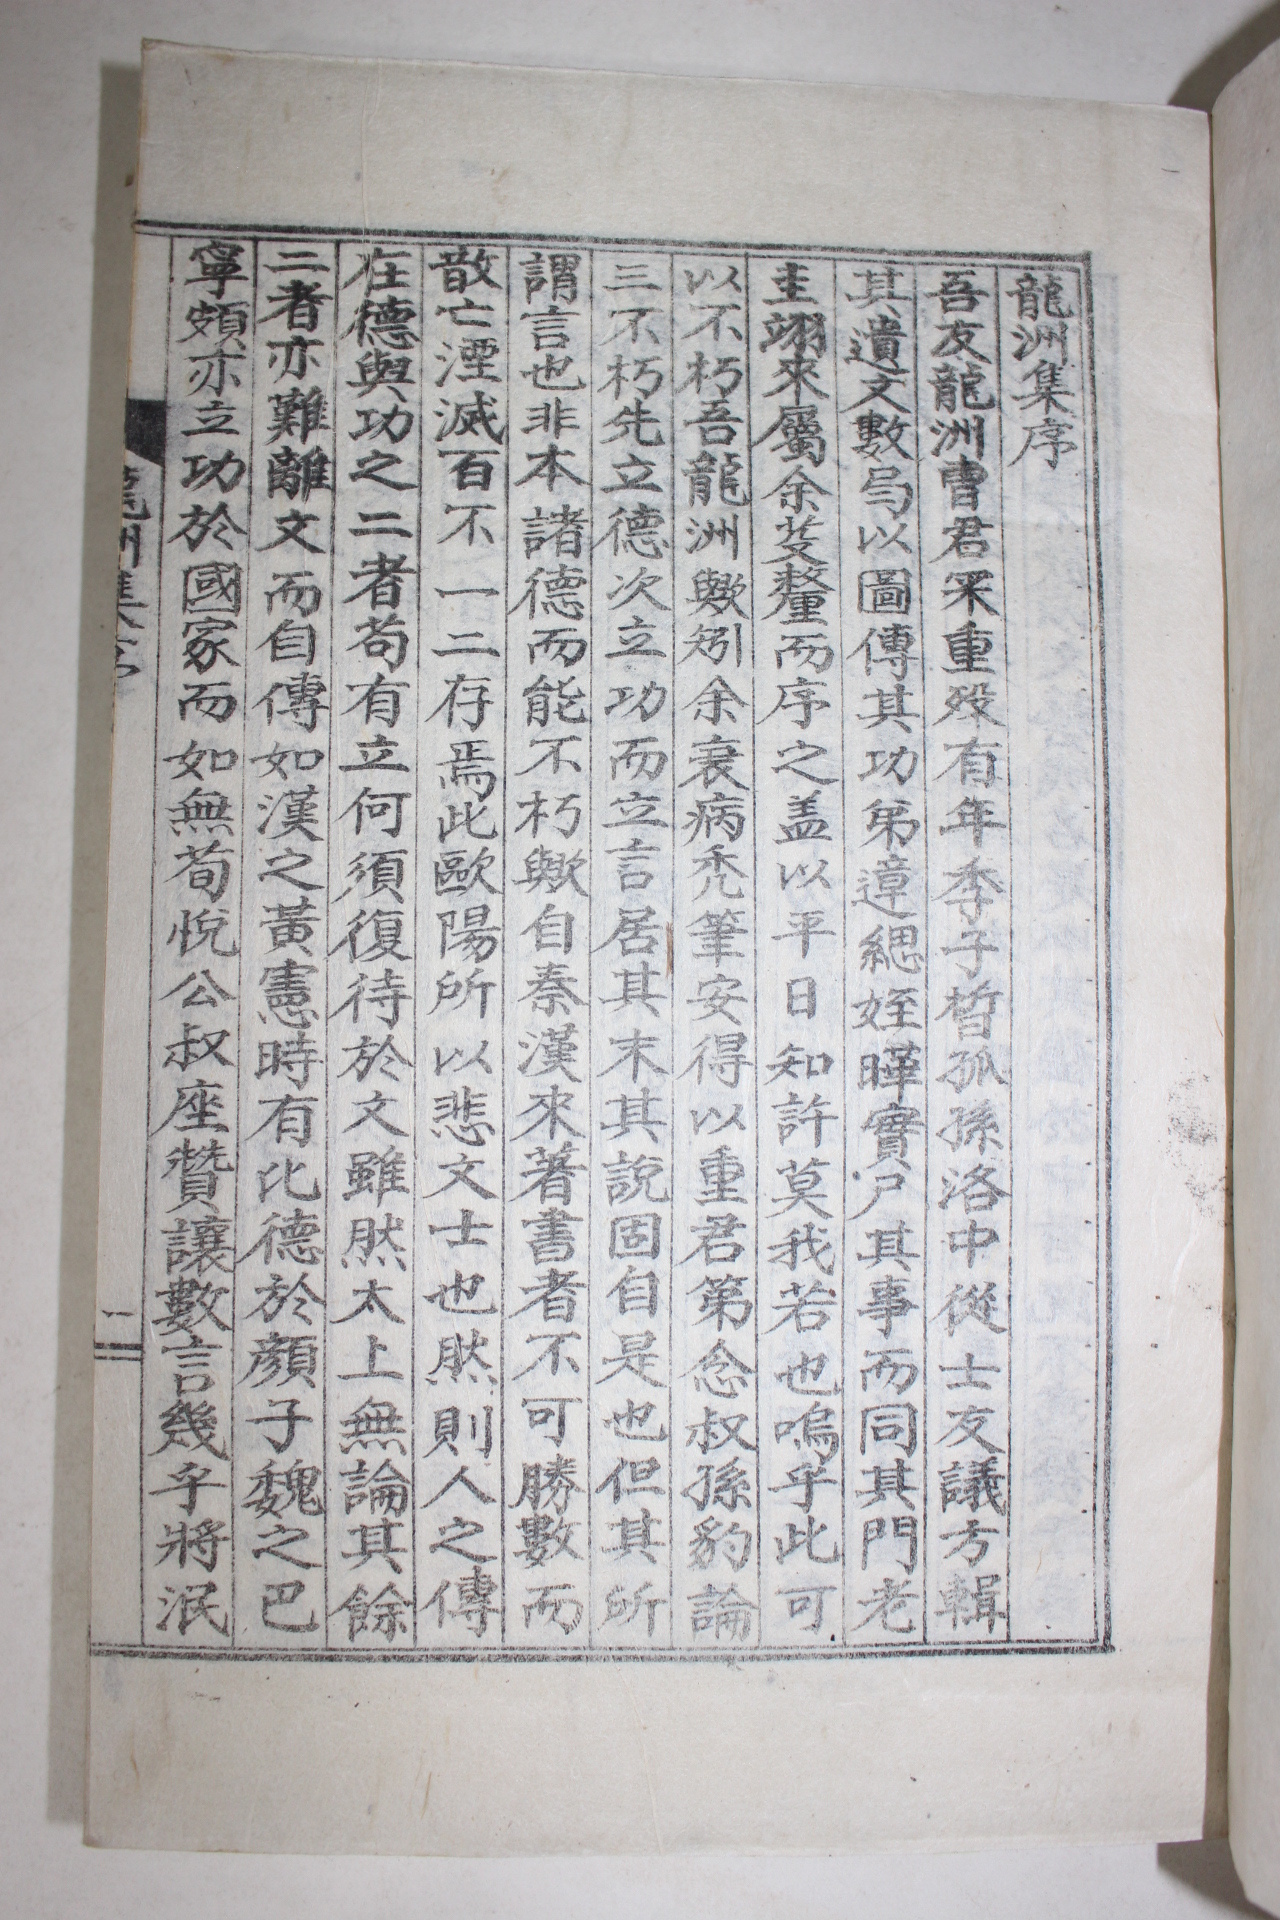 龍洲集序
吾友龍洲曺君冞重殁有年季子晳孤孫洛中從士友議方輯
其遺文數局以圖傳其功弟遧緦姪曄實尸其事而同其門老
圭翊來屬余芟釐而序之盖以平日知許莫我若也嗚乎此可
以不朽吾龍洲歟矧余衰病禿筆安得以重君第念叔孫豹論
三不朽先立德次立功而立言居其末其說固自是也但其所
謂言也非本諸德而能不朽歟自秦漢來著書者不可勝數而
散亡湮滅百不一二存焉此歐陽所以悲文士也然則人之傳
在德與功之二者苟有立何須復待於文雖然太上無論其餘
二者亦難離文而自傳如漢之黃憲時有比德於顔子魏之巴
寧頗亦立功於國家而如無荀悅公叔座贊讓數言幾乎將泯
龍洲集序
一